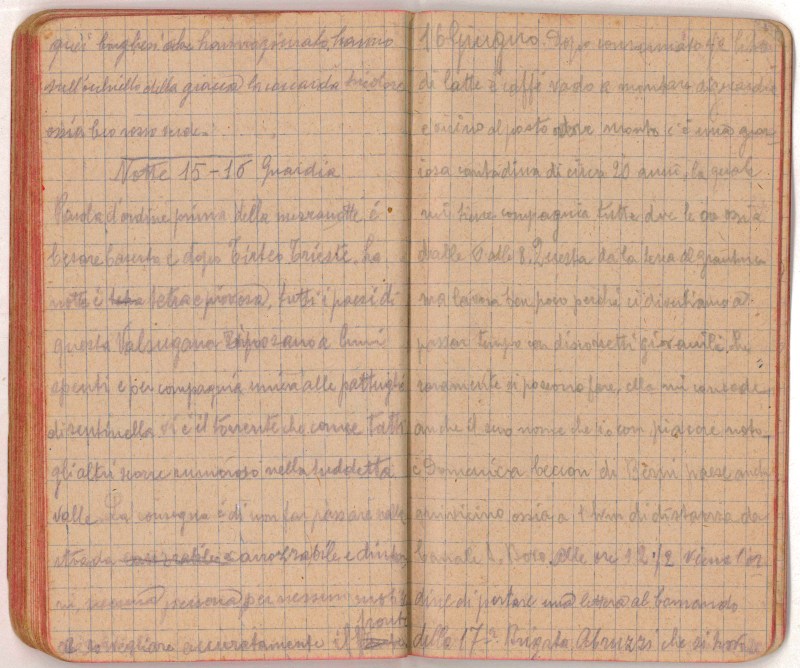 questi borghesi che hanno giurato, hanno
sull'occhiello della giacca la coccarda tricolore
ossia bianco rosso verde.
Notte 15-16 Guardia
Parola d'ordine prima della mezzanotte è
Cesare e dopo Tirteo Trieste. La
notte è tetra e piovosa, tutti i paesi di
questa Valsugana riposano a lumi
spenti e per compagnia unica alle pattuglie
di sentinella v'è il torrente che come tutti
gli altri scorre rumoroso nella suddetta
valle. La consegna è di non far passare nella
strada carrozzabile e dintor
ni, nessuna persona per nessun motivo
e sorvegliare accuratamente il fronte
16 Giugno. Dopo consumato
di latte e caffè vado a montare di guardia
e vicino al posto ove monto c'è una gra-
ziosa contadina di circa 20 anni, la quale
mi tiene compagnia tutte due le ore ossia
dalle 6 alle 8. Questa dà la terra al granturco
ma lavora ben poco perchè ci divertiamo a
passar tempo con discorsetti giovanili, che
raramente si possono fare, ella mi concede
anche il suo nome che io con piacere noto
è Domenica di paese
vicino ossia a 1 km di distanza da
Canale S. Bovo. Alle ore 12 1/2 viene l'or
dine di portare una lettera al Comando
della 17ª Brigata Abruzzi che si trova